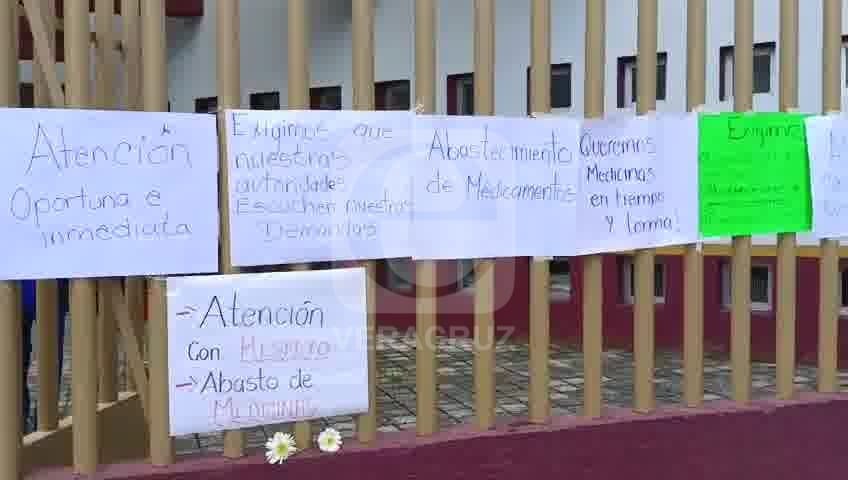 Atención
Oportuna e
inmediata
Exigimos que
nuestras
autoridades
Escuchen nuestras
Demandas
Abastecimiento
de Medicamentos
Queremos
Medicinas
en tiempo
y forma!
Exigimos
→ Atención
Con Respeto
→ Abasto de
Medicinas
VERACRUZ